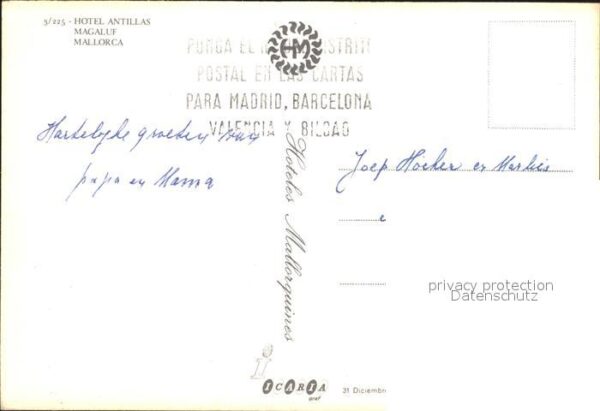 3/225 - HOTEL ANTILLAS
MAGALUF
MALLORCA
HM
PONGA EL DISTRITO
POSTAL EN LAS CARTAS
PARA MADRID, BARCELONA
VALENCIA Y BILBAO
Hartelijke groeten van
papa en Mama
Joep en
Hoteles Mallorquines
privacy protection
Datenschutz
ICARIA
graf
31 Diciembre